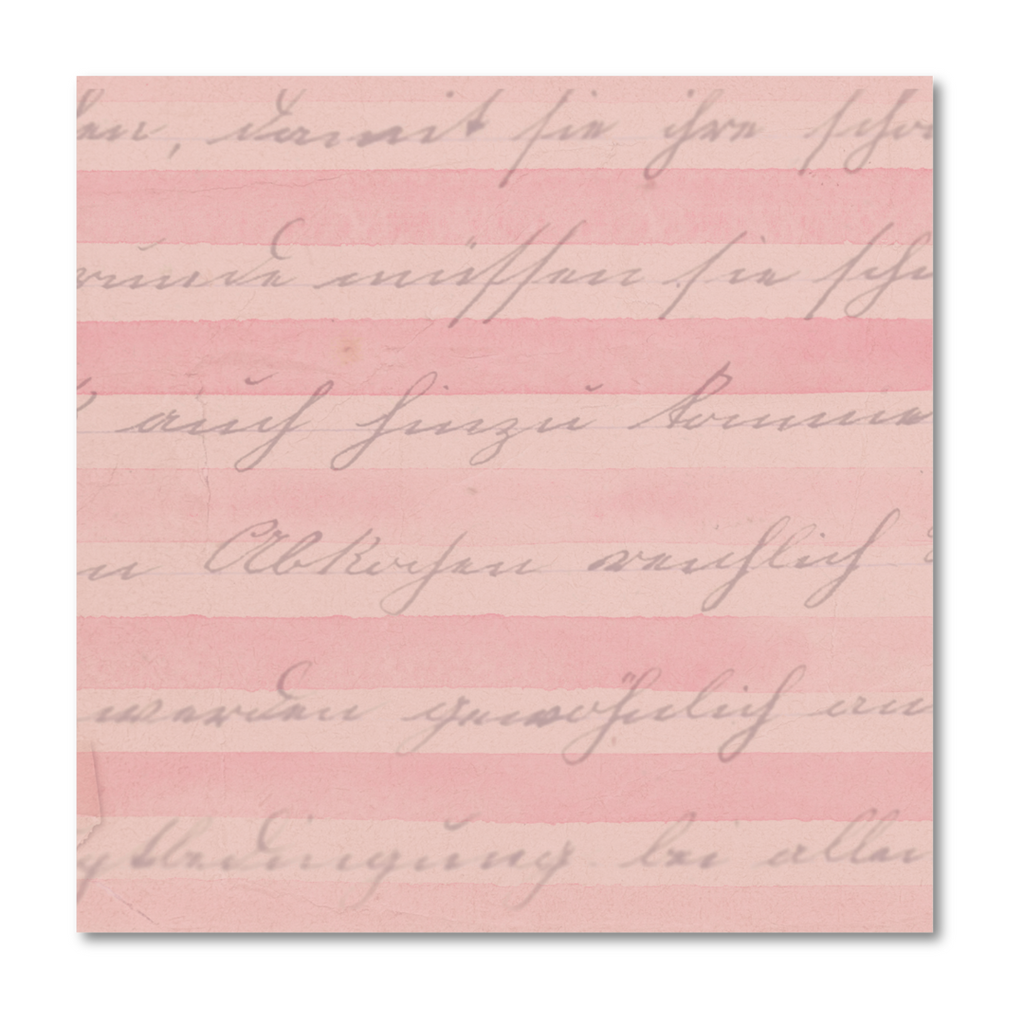 en, damit sie ihre scho
müssen sie sch
auch hinzu komme
n Abkochen reichlich
werden gewöhnlich an
tbedingung bei allen